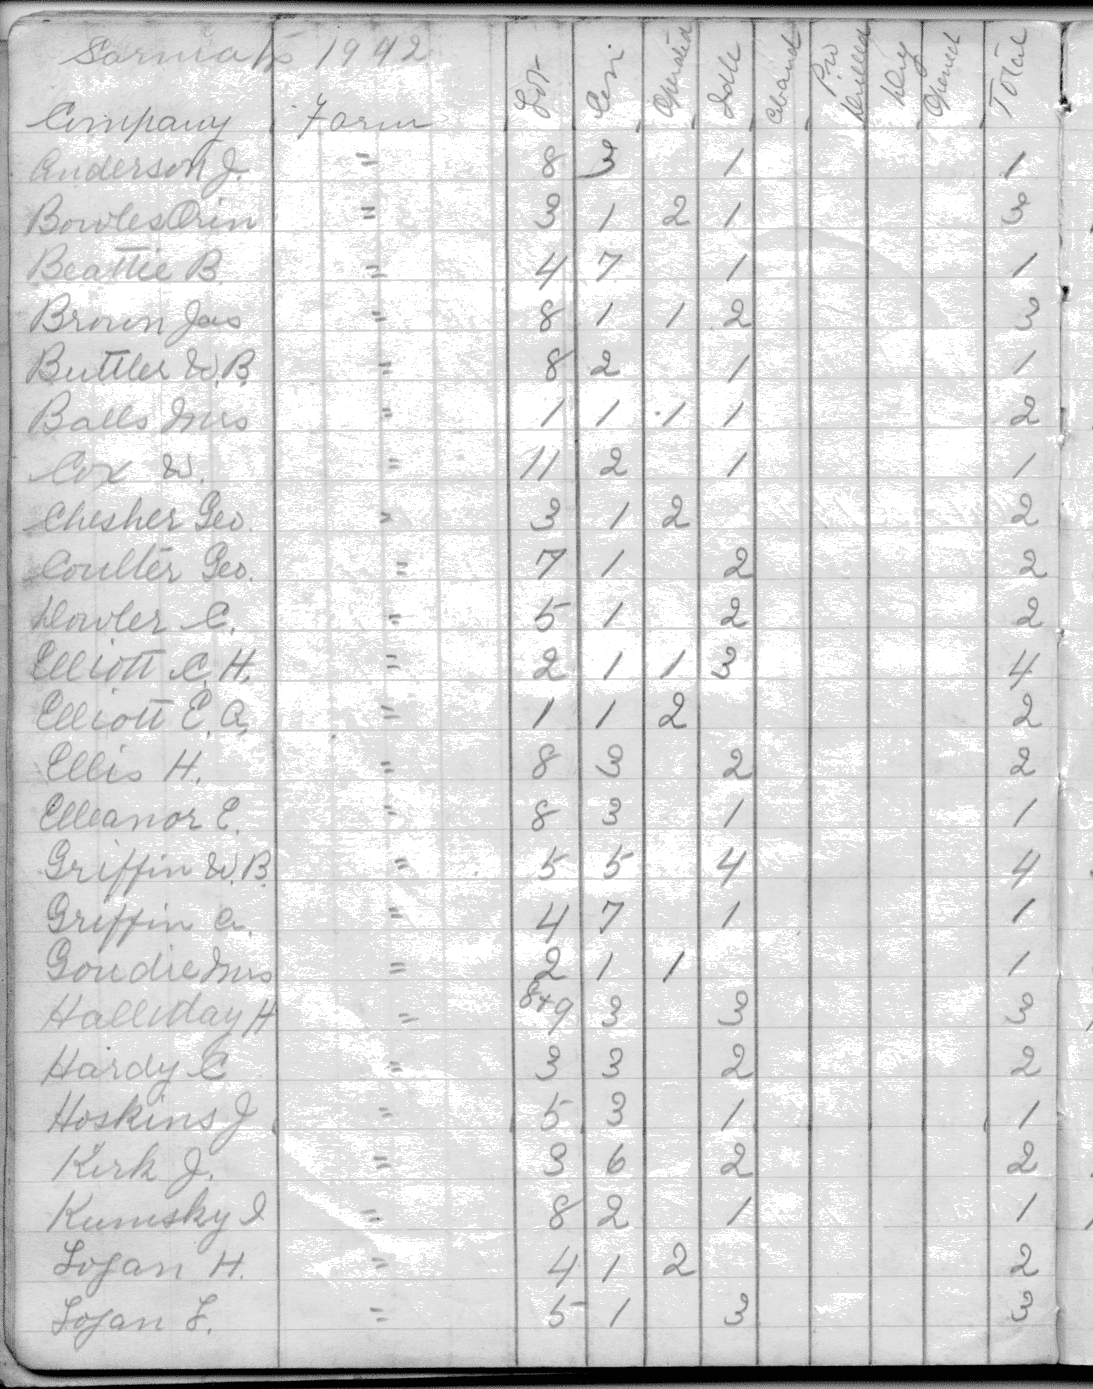 Sarnia Tp 1942
Company Farm Lot Con Operated Idle Aband Pro Drilled Dry Opened Total
Anderson J. " 8 3 1 1
Bowles Orin " 3 1 2 1 3
Beattie B " 4 7 1 1
Brown Jas " 8 1 1 2 3
Buttler W.B. " 8 2 1 1
Balls Mrs " 1 1 1 1 2
Cox W. " 11 2 1 1
Chesher Geo " 3 1 2 2
Coulter Geo. " 7 1 2 2
Dowler C. " 5 1 2 2
Elliott C.H. " 2 1 1 3 4
Elliott E.A. " 1 1 2 2
Ellis H. " 8 3 2 2
Elleanor E. " 8 3 1 1
Griffin W.B. " 5 5 4 4
Griffin A. " 4 7 1 1
Goudie Mrs " 2 1 1 1
Halliday H " 8+9 3 3 3
Hardy C " 3 3 2 2
Hoskins J " 5 3 1 1
Kirk J. " 3 6 2 2
Kumsky I " 8 2 1 1
Logan H. " 4 1 2 2
Logan F. " 5 1 3 3